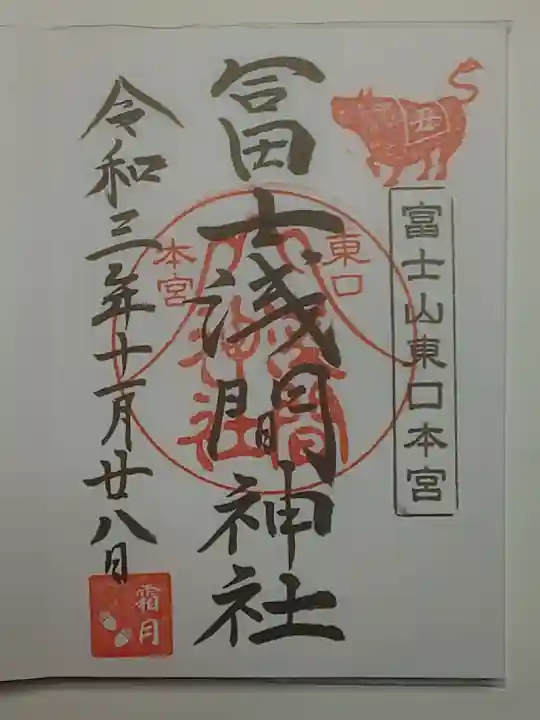 丑
富士山東口本宮
冨士浅間神社
東口
本宮
浅間
神社
令和三年十一月廿八日
霜月